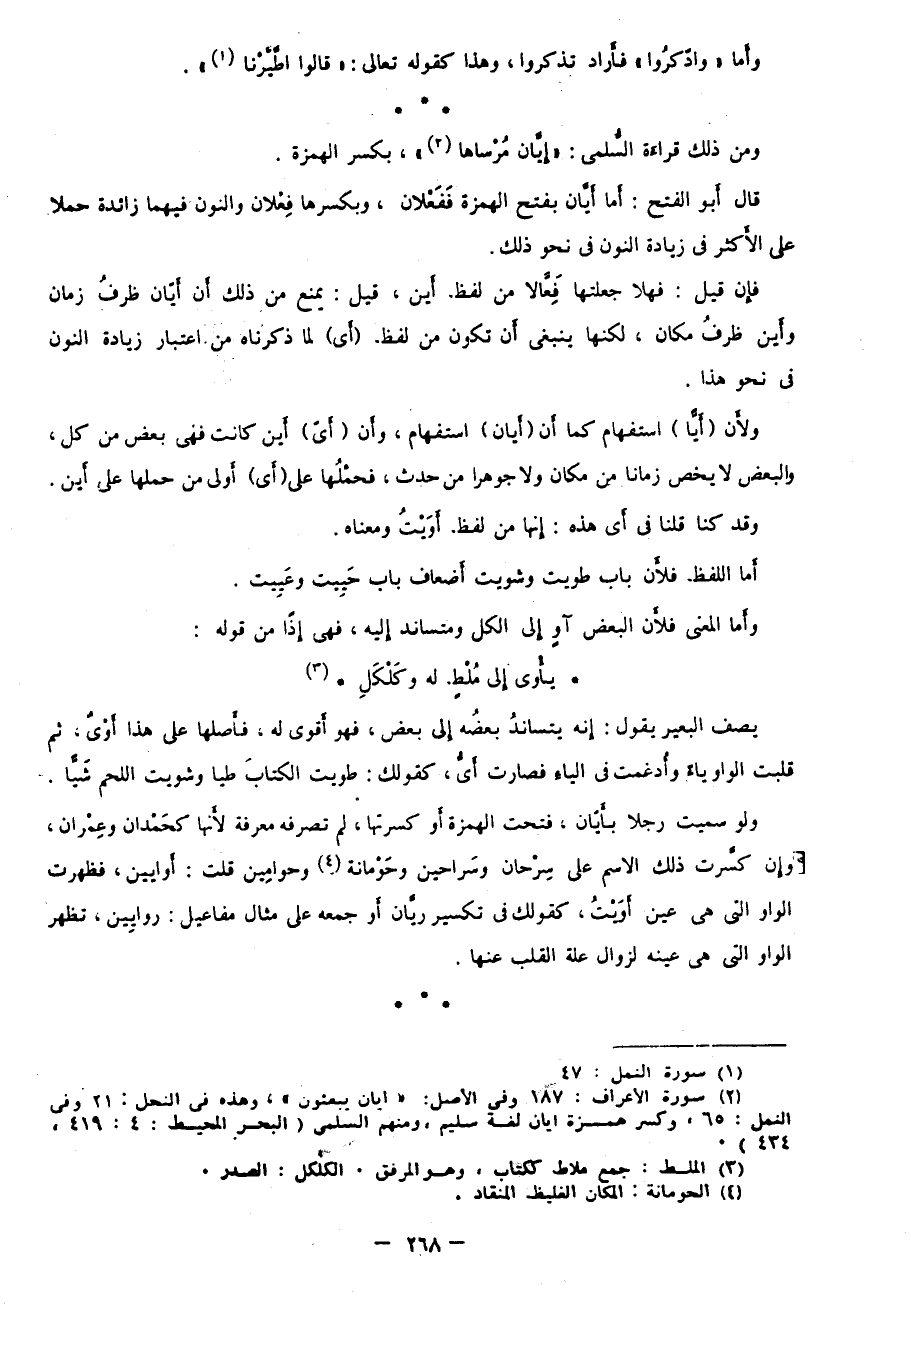 وأما « وادّكرُوا » فأراد تذكروا ، وهذا كقوله تعالى : « قالوا اطَّيَّرْنا (١) » .
ومن ذلك قراءة السُّلمى : « إيَّان مُرْساها (٢) » ، بكسر الهمزة .
قال أبو الفتح : أما أيَّان بفتح الهمزة فَفَعْلان ، وبكسرها فِعْلان والنون فيهما زائدة حملا
على الأكثر فى زيادة النون فى نحو ذلك .
فإن قيل : فهلا جعلتها فَِعَّالا من لفظ أين ، قيل : يمنع من ذلك أن أيّان ظرفُ زمان
وأين ظرفُ مكان ، لكنها ينبغى أن تكون من لفظ (أى) لما ذكرناه من اعتبار زيادة النون
فى نحو هذا .
ولأن ( أيًّا ) استفهام كما أن (أيان) استفهام ، وأن ( أىّ ) أين كانت فهى بعض من كل ،
والبعض لا يخص زمانا من مكان ولا جوهرا من حدث ، فحمْلُها على (أى) أولى من حملها على أين .
وقد كنا قلنا فى أى هذه : إنها من لفظ أَوَيْتُ ومعناه .
أما اللفظ فلأن باب طويت وشويت أضعاف باب حَيِيت وعَيِيت .
وأما المعنى فلأن البعض آوٍ إلى الكل ومتساند إليه ، فهى إذًا من قوله :
• يأوى إلى مُلْطٍ له وكَلْكَلِ • (٣)
يصف البعير يقول : إنه يتساندُ بعضُه إلى بعض ، فهو أقوى له ، فأصلها على هذا أَوْىٌ ، ثم
قلبت الواو ياء وأُدغمت فى الياء فصارت أىُّ ، كقولك : طويت الكتابَ طيا وشويت اللحم شَيًّا .
ولو سميت رجلا بأيَّان ، فتحت الهمزة أو كسرتها ، لم تصرفه معرفة لأنها كحَمْدان وعِمْران ،
وإن كسَّرت ذلك الاسم على سِرْحان وسَراحين وحَوْمانة (٤) وحوامِين قلت : أوايين ، فظهرت
الواو التى هى عين أَوَيْتُ ، كقولك فى تكسير ريَّان أو جمعه على مثال مفاعيل : روايِين ، تظهر
الواو التى هى عينه لزوال علة القلب عنها .
(١) سورة النمل : ٤٧
(٢) سورة الأعراف : ١٨٧ وفى الأصل : « ايان يبعثون » ، وهذه فى النحل : ٢١ وفى
النمل : ٦٥ ، وكسر همزة ايان لغة سليم ، ومنهم السلمى ( البحر المحيط : ٤ : ٤١٩ ،
٤٣٤ ) .
(٣) الملط : جمع ملاط ككتاب ، وهو المرفق . الكلكل : الصدر .
(٤) الحومانة : المكان الغليظ المنقاد .
— ٢٦٨ —